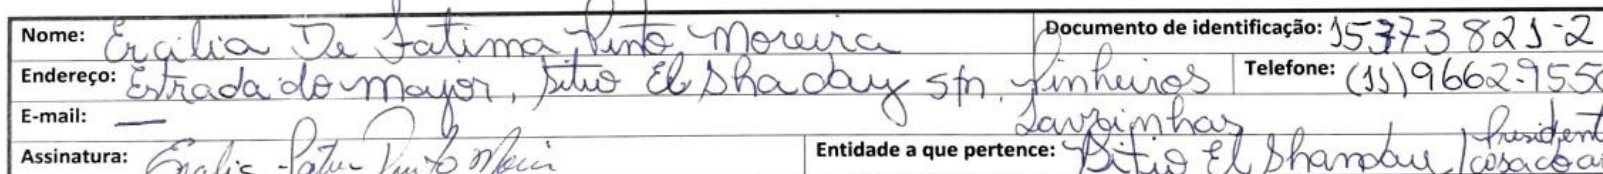 Nome: Ercilia De Fatima Pinto Moreira Documento de identificação: 15373821-2
Endereço: Estrada do Mayor, Sitio El Shaday s/n, Pinheiros Telefone: (11)9662-9550
Lavrinhas
E-mail: —
Assinatura: Entidade a que pertence: Sitio El /President